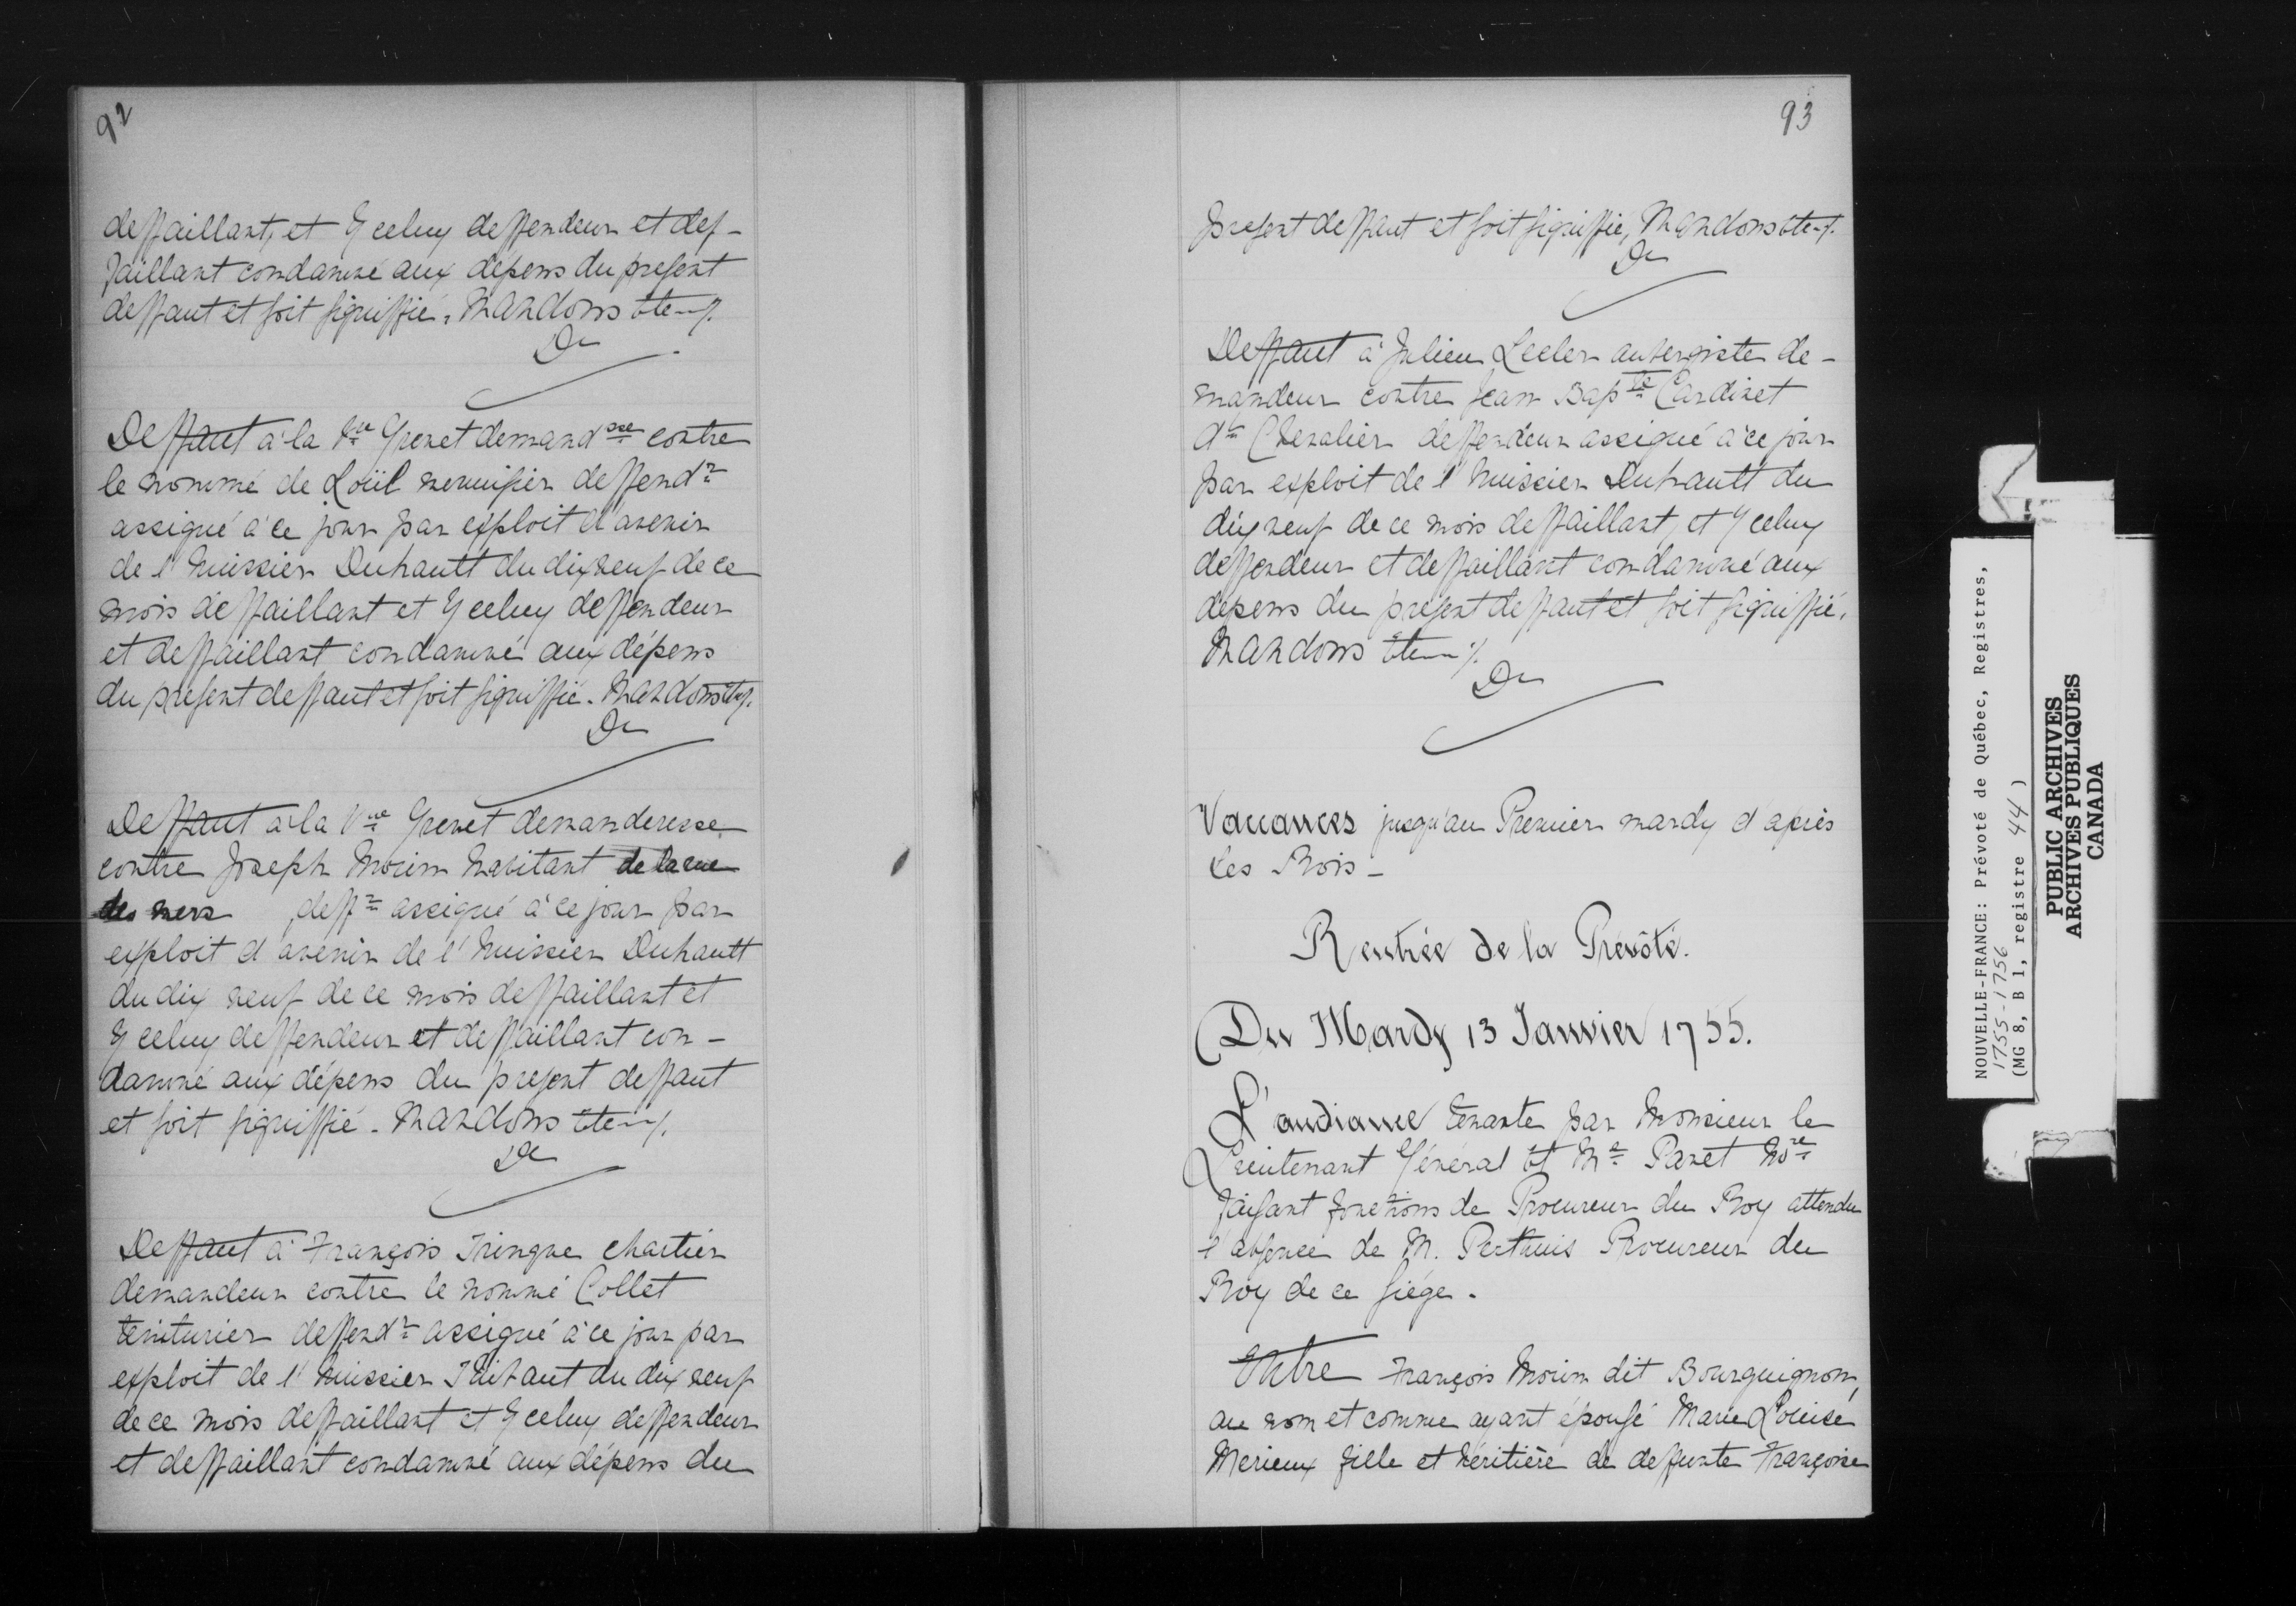 92
deffaillant, et Yceluy deffendeur et def-
faillant condamné aux dépens du present
deffaut et soit signiffié. Mandons etc ./.
D
Deffaut à la Vve Grenet demandsse contre
le nommé de Loüil menuisier deffendr
assigné à ce jour par exploit d'avenir
de l'huissier Duhautt du dix neuf de ce
mois deffaillant et Yceluy deffendeur
et deffaillant condamné aux dépens
du present deffaut et soit signiffié. Mandons etc ./.
D
Deffaut à la Vve Grenet demanderesse
contre Joseph Morin habitant de la rue
des mers deffr assigné à ce jour par
exploit d'avenir de l'huissier Duhautt
du dix neuf de ce mois deffaillant et
Yceluy deffendeur et deffaillant con-
damné aux dépens du present deffaut
et soit signiffié. Mandons etc ./.
D
Deffaut à François Tringue chartier
demandeur contre le nommé Collet
teinturier deffendr assigné à ce jour par
exploit de l'huissier du dix neuf
de ce mois deffaillant et Yceluy deffendeur
et deffaillant condamné aux dépens du
93
present deffaut et soit signiffié, Mandons etc ./.
D
Deffaut à Julien Lecler aubergiste de-
mandeur contre Jean Bapte Cardinet
dt Chevalier deffendeur assigné à ce jour
par exploit de l'huissier Duhautt du
dix neuf de ce mois deffaillant, et Yceluy
deffendeur et deffaillant condamné aux
dépens du present deffaut et soit signiffié.
Mandons etc ./.
D
Vaccances jusqu'au Premier mardy d'après
les Rois -
Rentrée de la Prévôté.
Du Mardy 13 Janvier 1755.
L'audiance tenante par Monsieur le
Lieutenant Général et Me Panet Nore
faisant fonctions de Procureur du Roy attendu
l'absence de M. Perthuis Procureur du
Roy de ce siége.
Entre François Morin dit Bourguignon,
au nom et comme ayant épousé Marie Louise
Merieux fille et héritière de deffunte Françoise
NOUVELLE-FRANCE: Prévoté de Québec, Registres,
1755-1756
(MG 8, B 1, registre 44)
PUBLIC ARCHIVES
ARCHIVES PUBLIQUES
CANADA